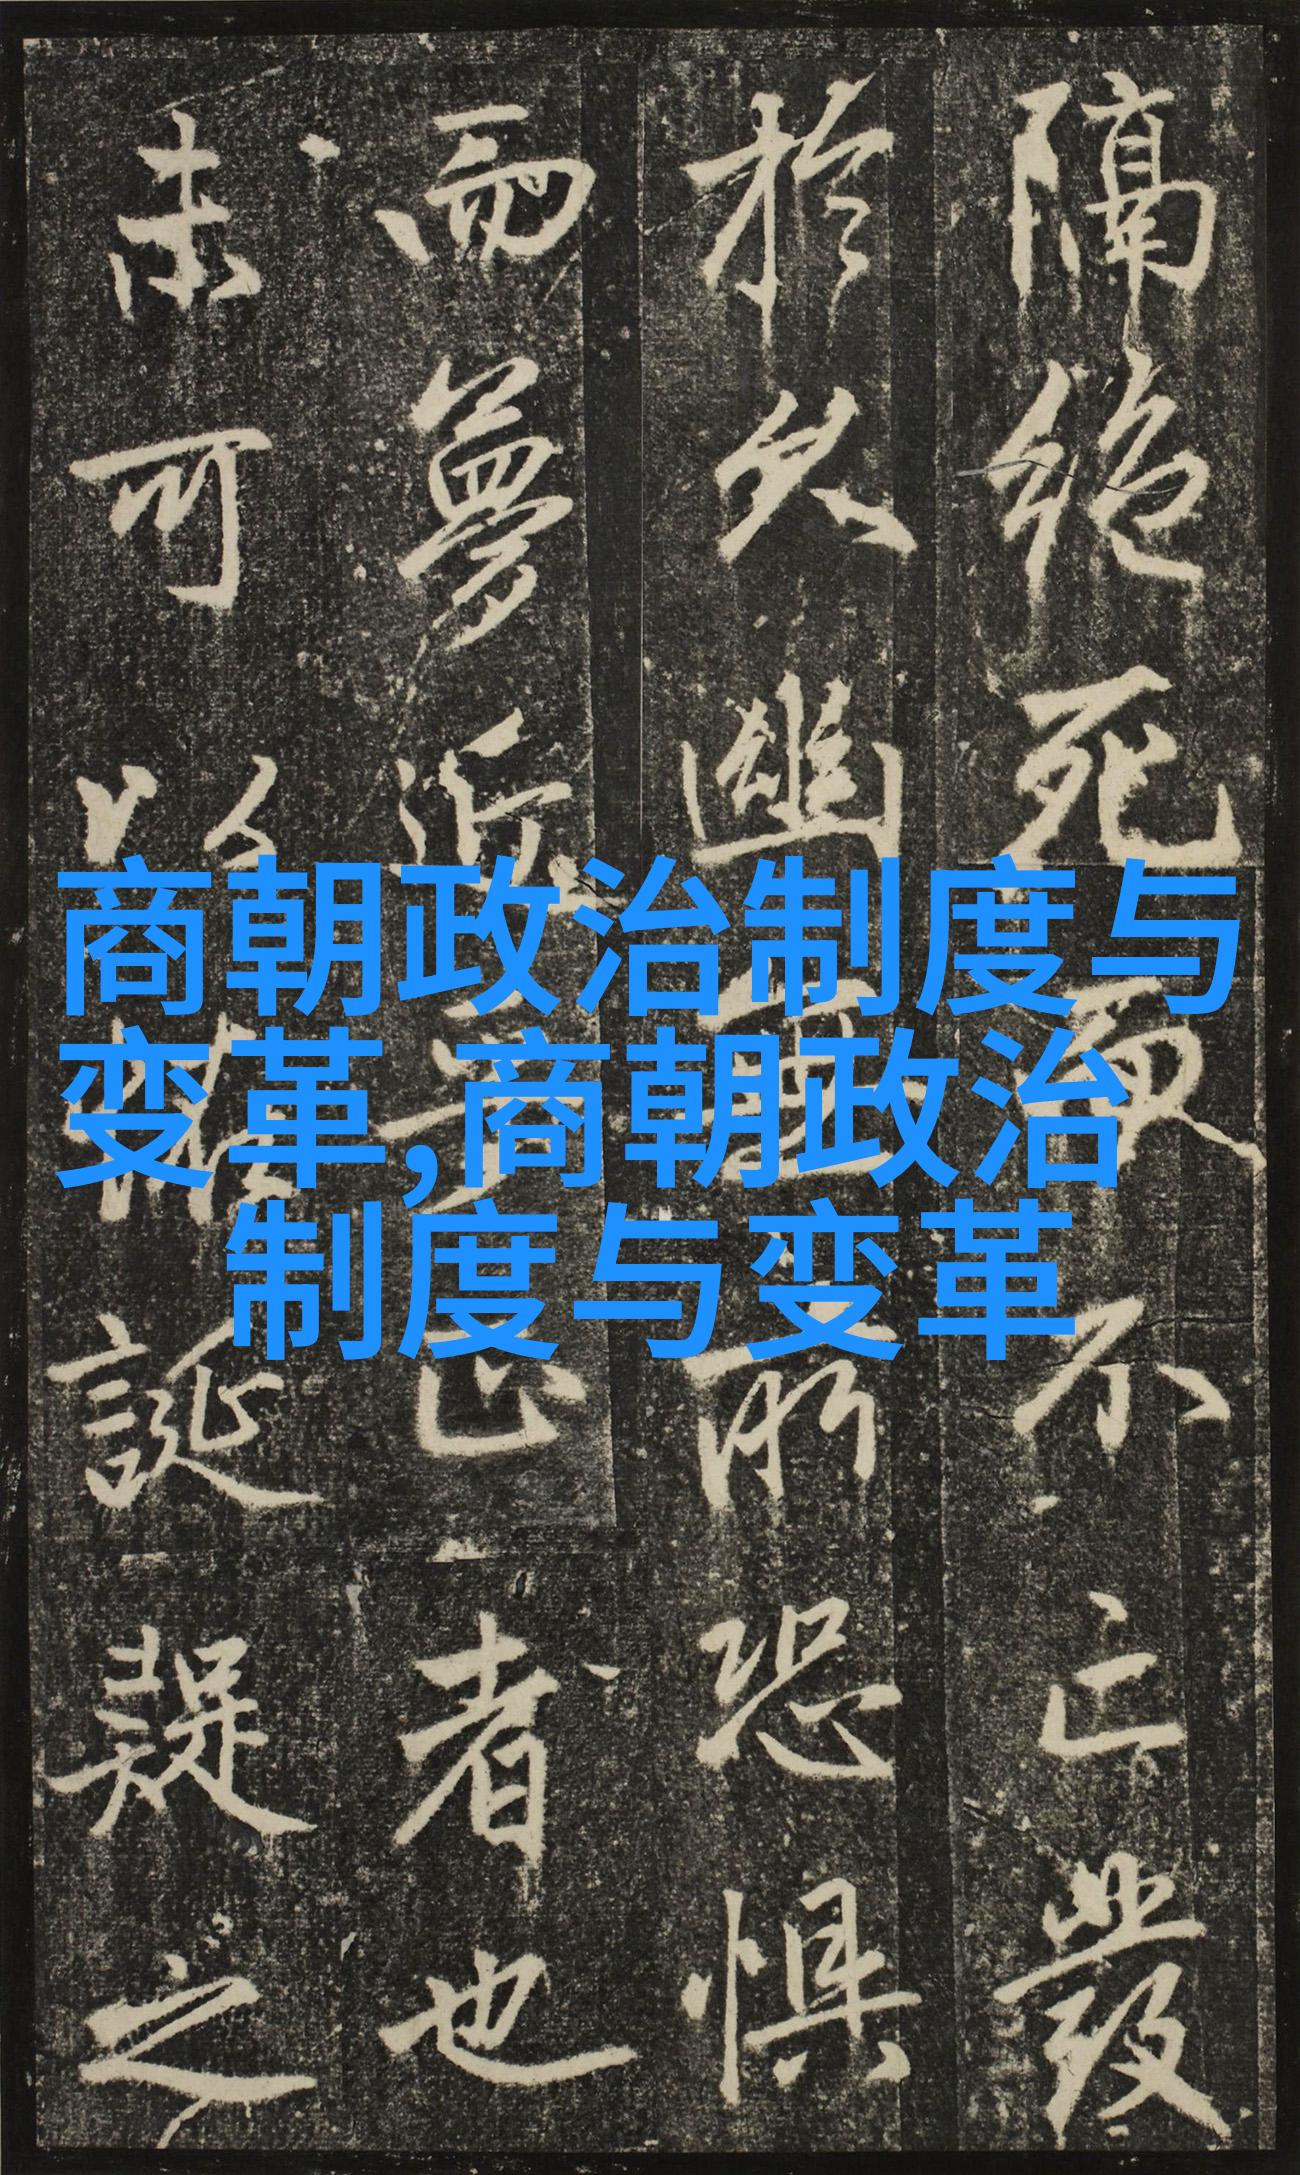 商朝政治制度与
变革,商朝政治
制度与变革
隔絕死而不亡發
於久幽所恐懼
而夢近正者也
未可以誕疑之